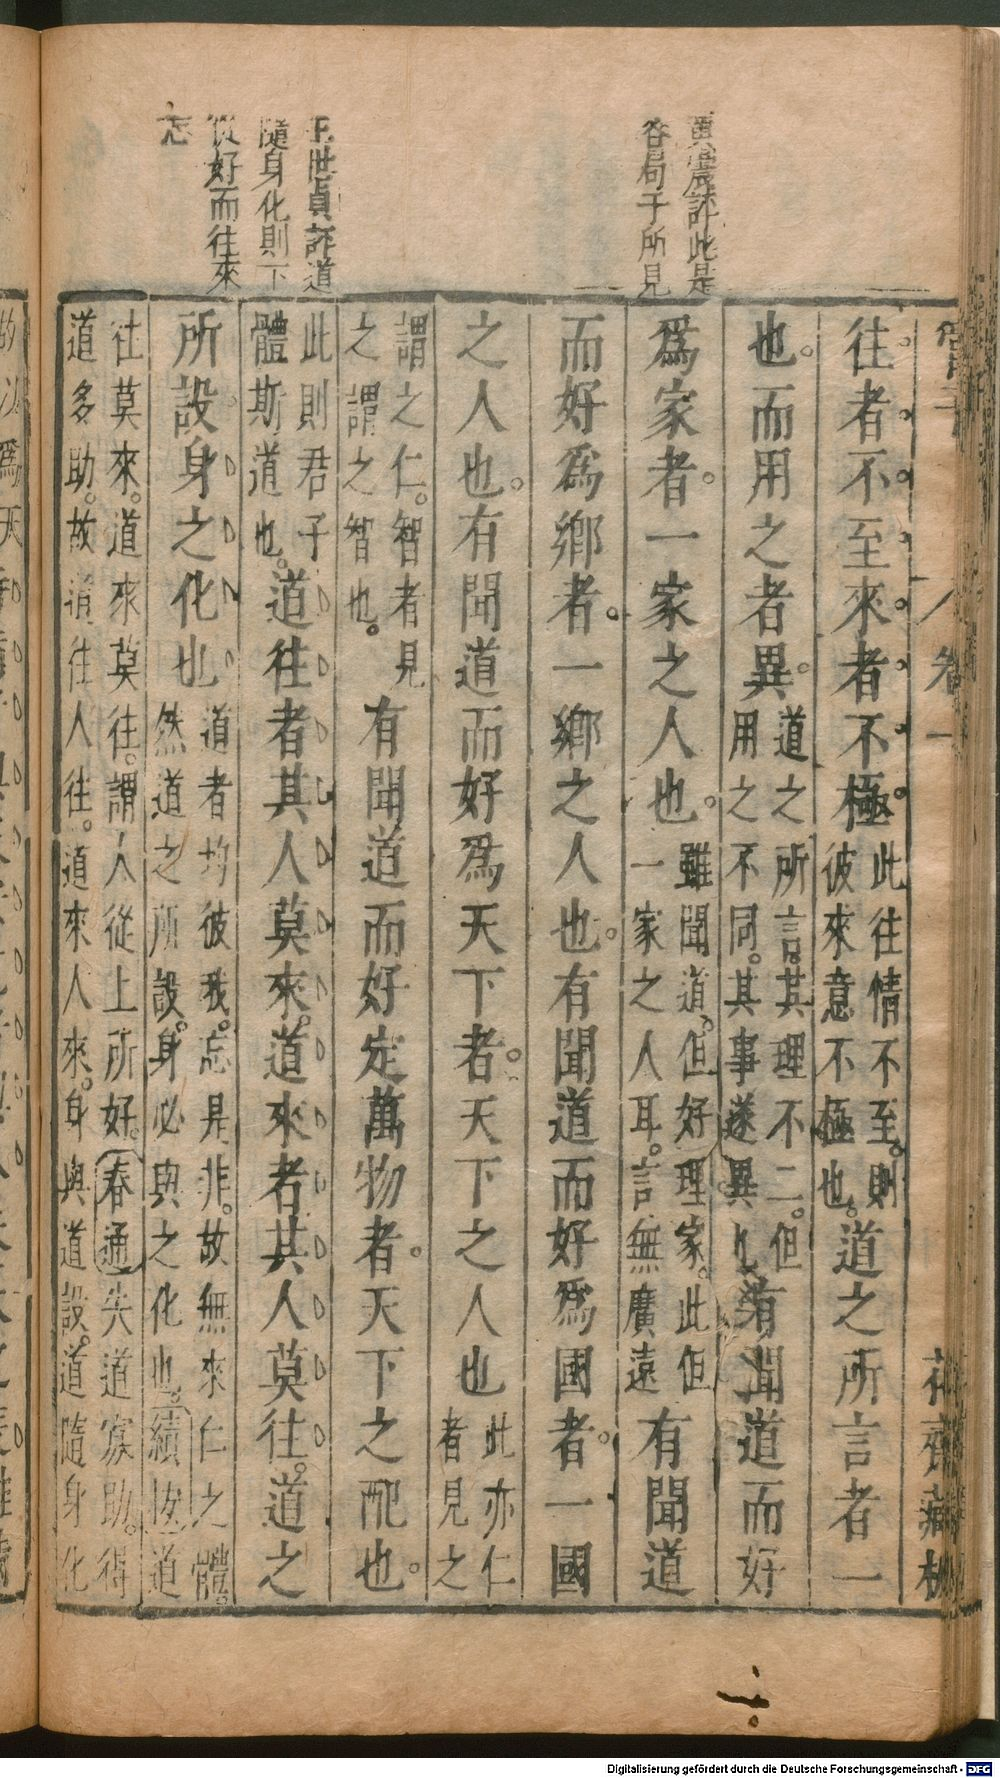 評此是
容局于所見
王世貞評道
隨身化則下
從好而往來
忘
卷一
花齋藏板
往者不至來者不極
此往情不至則
彼來意不極也
道之所言者一
也而用之者異
道之所言其理不二但
用之不同其事遂異也
有聞道而好
爲家者一家之人也
雖聞道但好理家此但
一家之人耳言無廣遠
有聞道
而好爲鄉者一鄉之人也有聞道而好爲國者一國
之人也有聞道而好爲天下者天下之人也
此亦仁
者見之
謂之仁智者見
之謂之智也
有聞道而好定萬物者天下之配也
此則君子
體斯道也
道往者其人莫來道來者其人莫往道之
所設身之化也
道者均彼我忘是非故無來仁之體
然道之所設身必與之化也績按道
往莫來道來莫往謂人從上所好春通失道寡助得
道多助故道往人往道來人來身與道設道隨身化
Digitalisierung gefördert durch die Deutsche Forschungsgemeinschaft - DFG